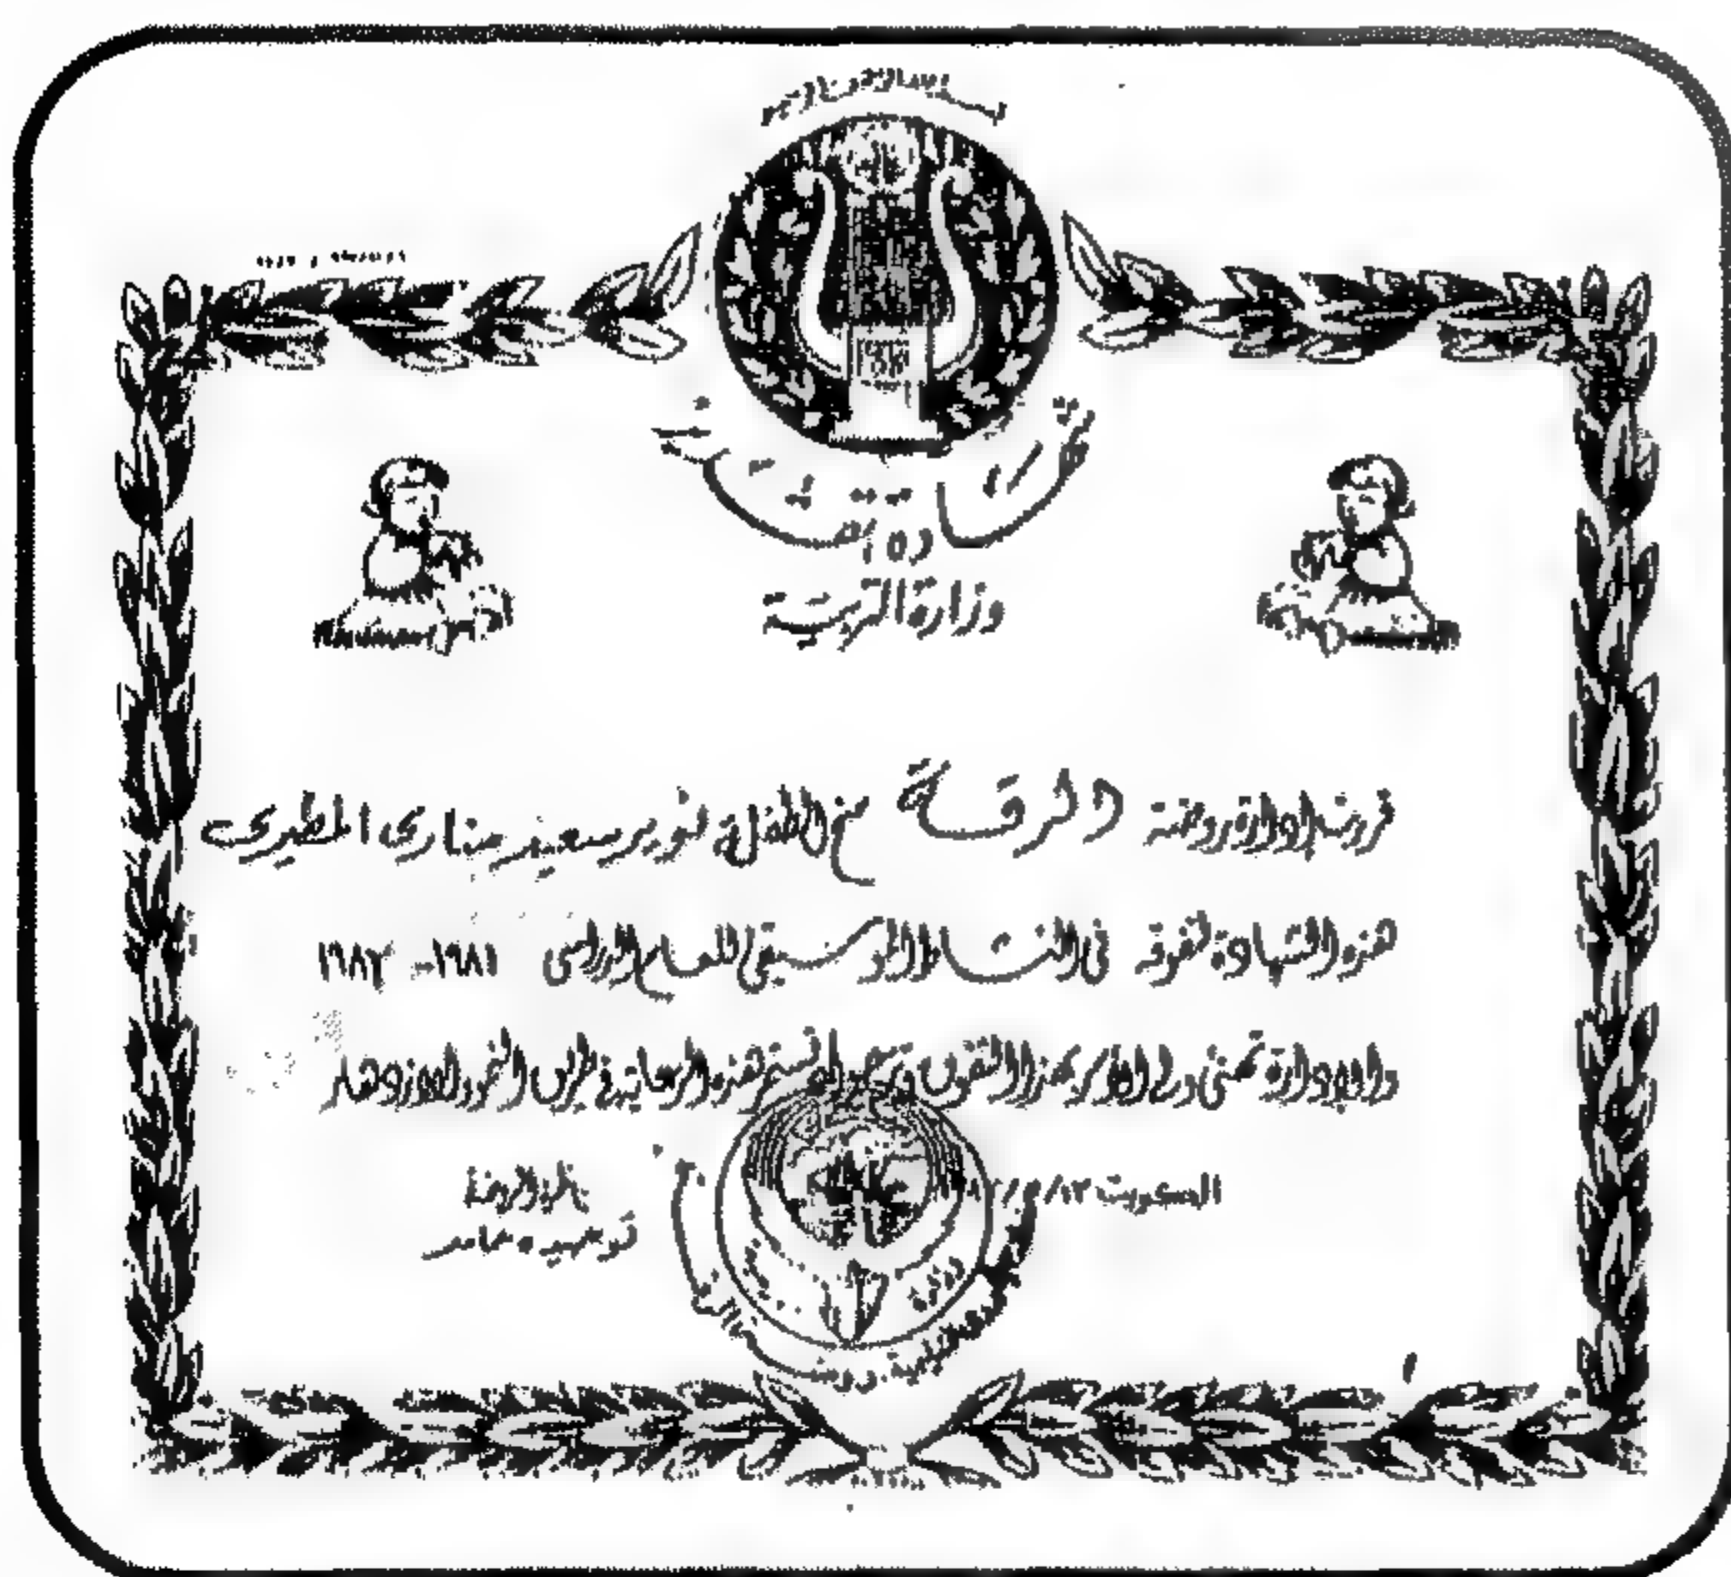 بسم الله الرحمن الرحيم
شهادة تقدير
وزارة التربية
قررت إدارة روضة الرقة منح الطفلة نوير سعيد مناري المطيري
هذه الشهادة لتفوقه في النشاط الموسيقي للعام الدراسي ١٩٨١ - ١٩٨٢
والإدارة تهنئ ولي الأمر بهذا التفوق وترجو أن تستمر هذه الرعاية في طريق النمو والازدهار
الكويت
ناظرة الروضة
توحيده حامد
وزارة